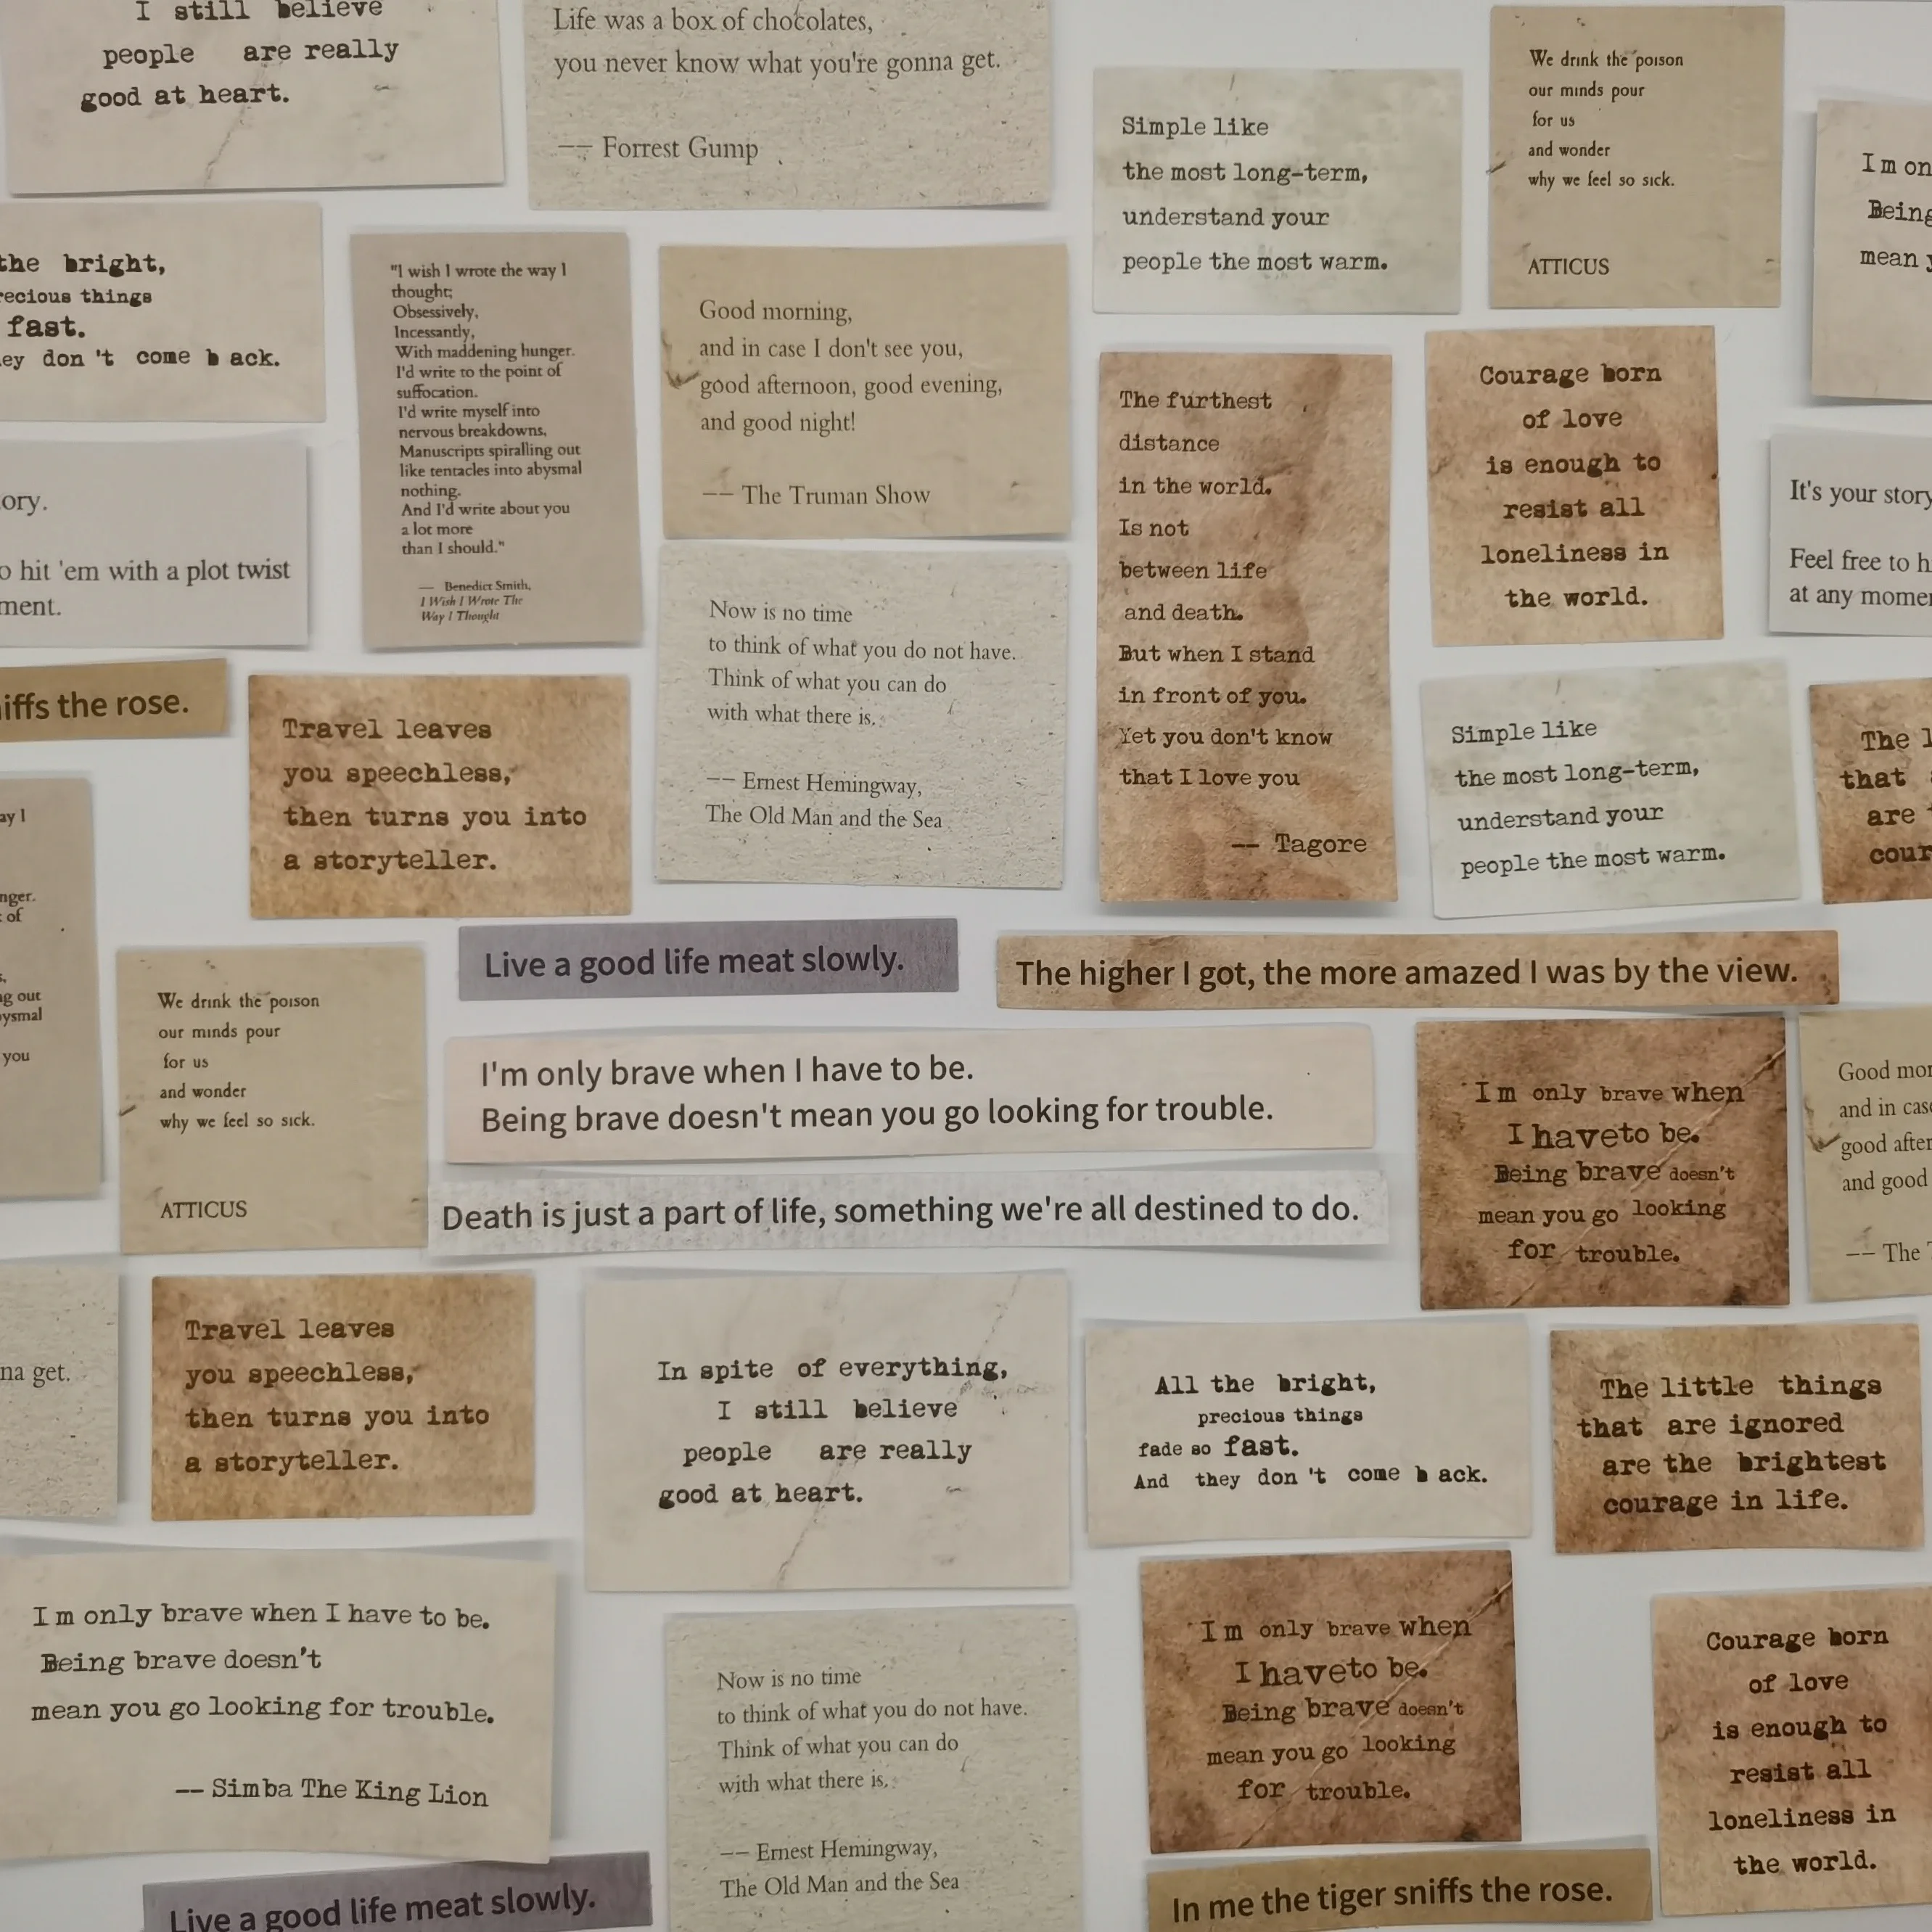 I still believe
people are really
good at heart.
Life was a box of chocolates,
you never know what you're gonna get.
—— Forrest Gump
Simple like
the most long-term,
understand your
people the most warm.
We drink the poison
our minds pour
for us
and wonder
why we feel so sick.
ATTICUS
I m on
Being
mean y
the bright,
recious things
fast.
ey don 't come b ack.
"I wish I wrote the way I
thought;
Obsessively,
Incessantly,
With maddening hunger.
I'd write to the point of
suffocation.
I'd write myself into
nervous breakdowns,
Manuscripts spiralling out
like tentacles into abysmal
nothing.
And I'd write about you
a lot more
than I should."
— Benedict Smith,
I Wish I Wrote The
Way I Thought
Good morning,
and in case I don't see you,
good afternoon, good evening,
and good night!
—— The Truman Show
The furthest
distance
in the world.
Is not
between life
and death.
But when I stand
in front of you.
Yet you don't know
that I love you
—— Tagore
Courage born
of love
is enough to
resist all
loneliness in
the world.
ory.
o hit 'em with a plot twist
ment.
It's your story
Feel free to h
at any momen
Now is no time
to think of what you do not have.
Think of what you can do
with what there is.
—— Ernest Hemingway,
The Old Man and the Sea
iffs the rose.
Travel leaves
you speechless,
then turns you into
a storyteller.
Simple like
the most long-term,
understand your
people the most warm.
The l
that
are
cour
ay I
nger.
of
g out
ysmal
you
Live a good life meat slowly.
The higher I got, the more amazed I was by the view.
We drink the poison
our minds pour
for us
and wonder
why we feel so sick.
ATTICUS
I'm only brave when I have to be.
Being brave doesn't mean you go looking for trouble.
I m only brave when
I haveto be.
Being brave doesn't
mean you go looking
for trouble.
Good mor
and in cas
good after
and good
—— The T
Death is just a part of life, something we're all destined to do.
na get.
Travel leaves
you speechless,
then turns you into
a storyteller.
In spite of everything,
I still believe
people are really
good at heart.
All the bright,
precious things
fade so fast.
And they don 't come b ack.
The little things
that are ignored
are the brightest
courage in life.
I m only brave when I have to be.
Being brave doesn't
mean you go looking for trouble.
—— Simba The King Lion
Now is no time
to think of what you do not have.
Think of what you can do
with what there is.
—— Ernest Hemingway,
The Old Man and the Sea
I m only brave when
I haveto be.
Being brave doesn't
mean you go looking
for trouble.
Courage born
of love
is enough to
resist all
loneliness in
the world.
Live a good life meat slowly.
In me the tiger sniffs the rose.